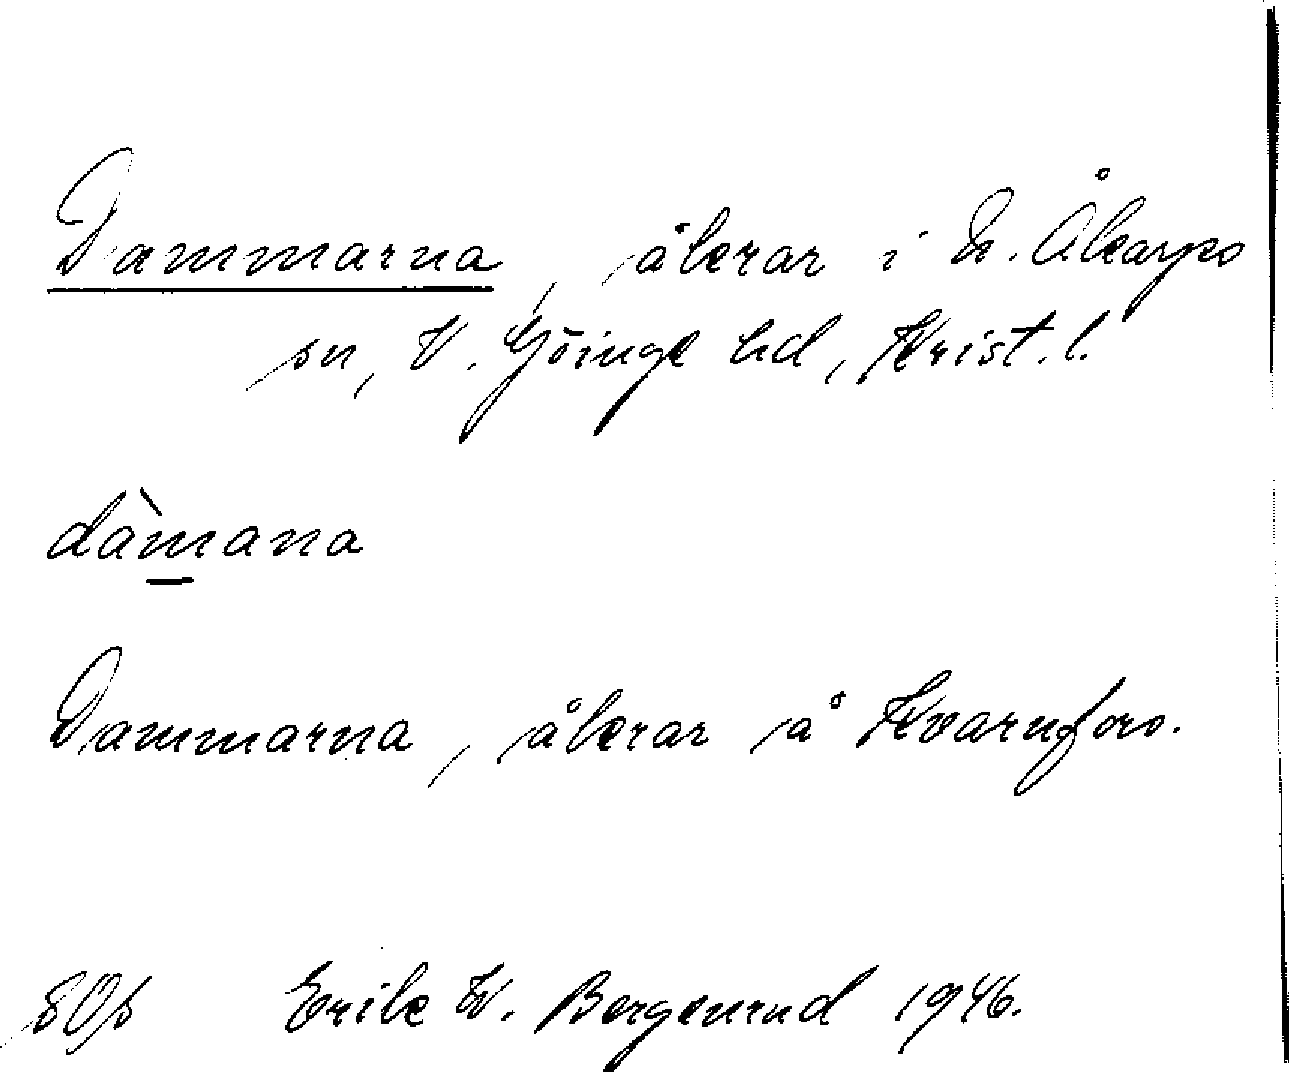 Dammarna, åkrar i N. Åkarps
sn, V. Göinge hd, Krist. l.
dàmana
Dammarna, åkrar å Kvarnfors.
Erik W. Bergenrud 1946.